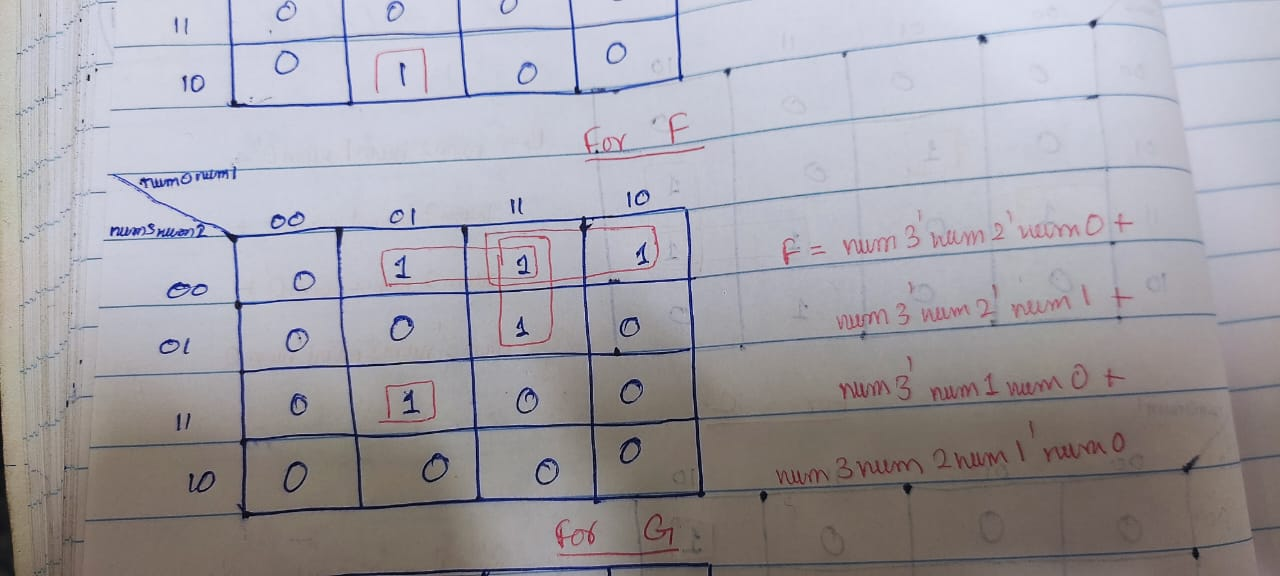 11 0 0 0 0
10 0 1 0 0
For F
num0num1
num3num2 00 01 11 10
00 0 1 1 1
01 0 0 1 0
11 0 1 0 0
10 0 0 0 0
F = num3'num2'num0 +
num3'num2'num1 +
num3'num1num0 +
num3num2num1'num0
For G